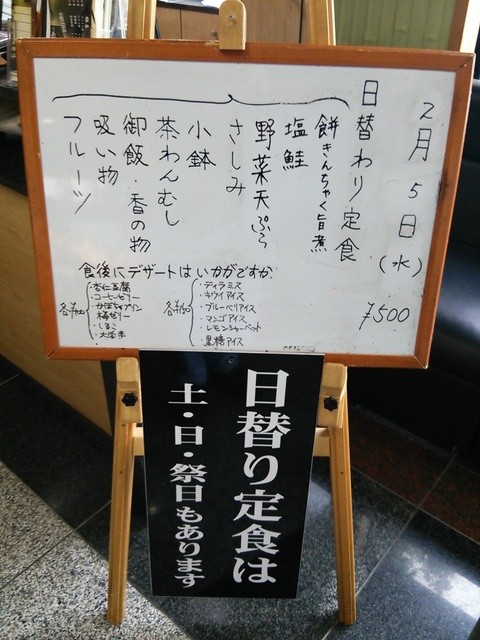 2月5日(水)
日替わり定食
餅きんちゃく旨煮
塩鮭
野菜天ぷら
さしみ
小鉢
茶わんむし
御飯・香の物
吸い物
フルーツ
食後にデザートはいかがですか
・杏仁豆腐
・コーヒーゼリー
・しるこ
・ティラミス
・キウイアイス
・ブルーベリアイス
・マンゴアイス
・レモンシャーベット
・黒糖アイス
日替り定食は
土・日・祭日もあります